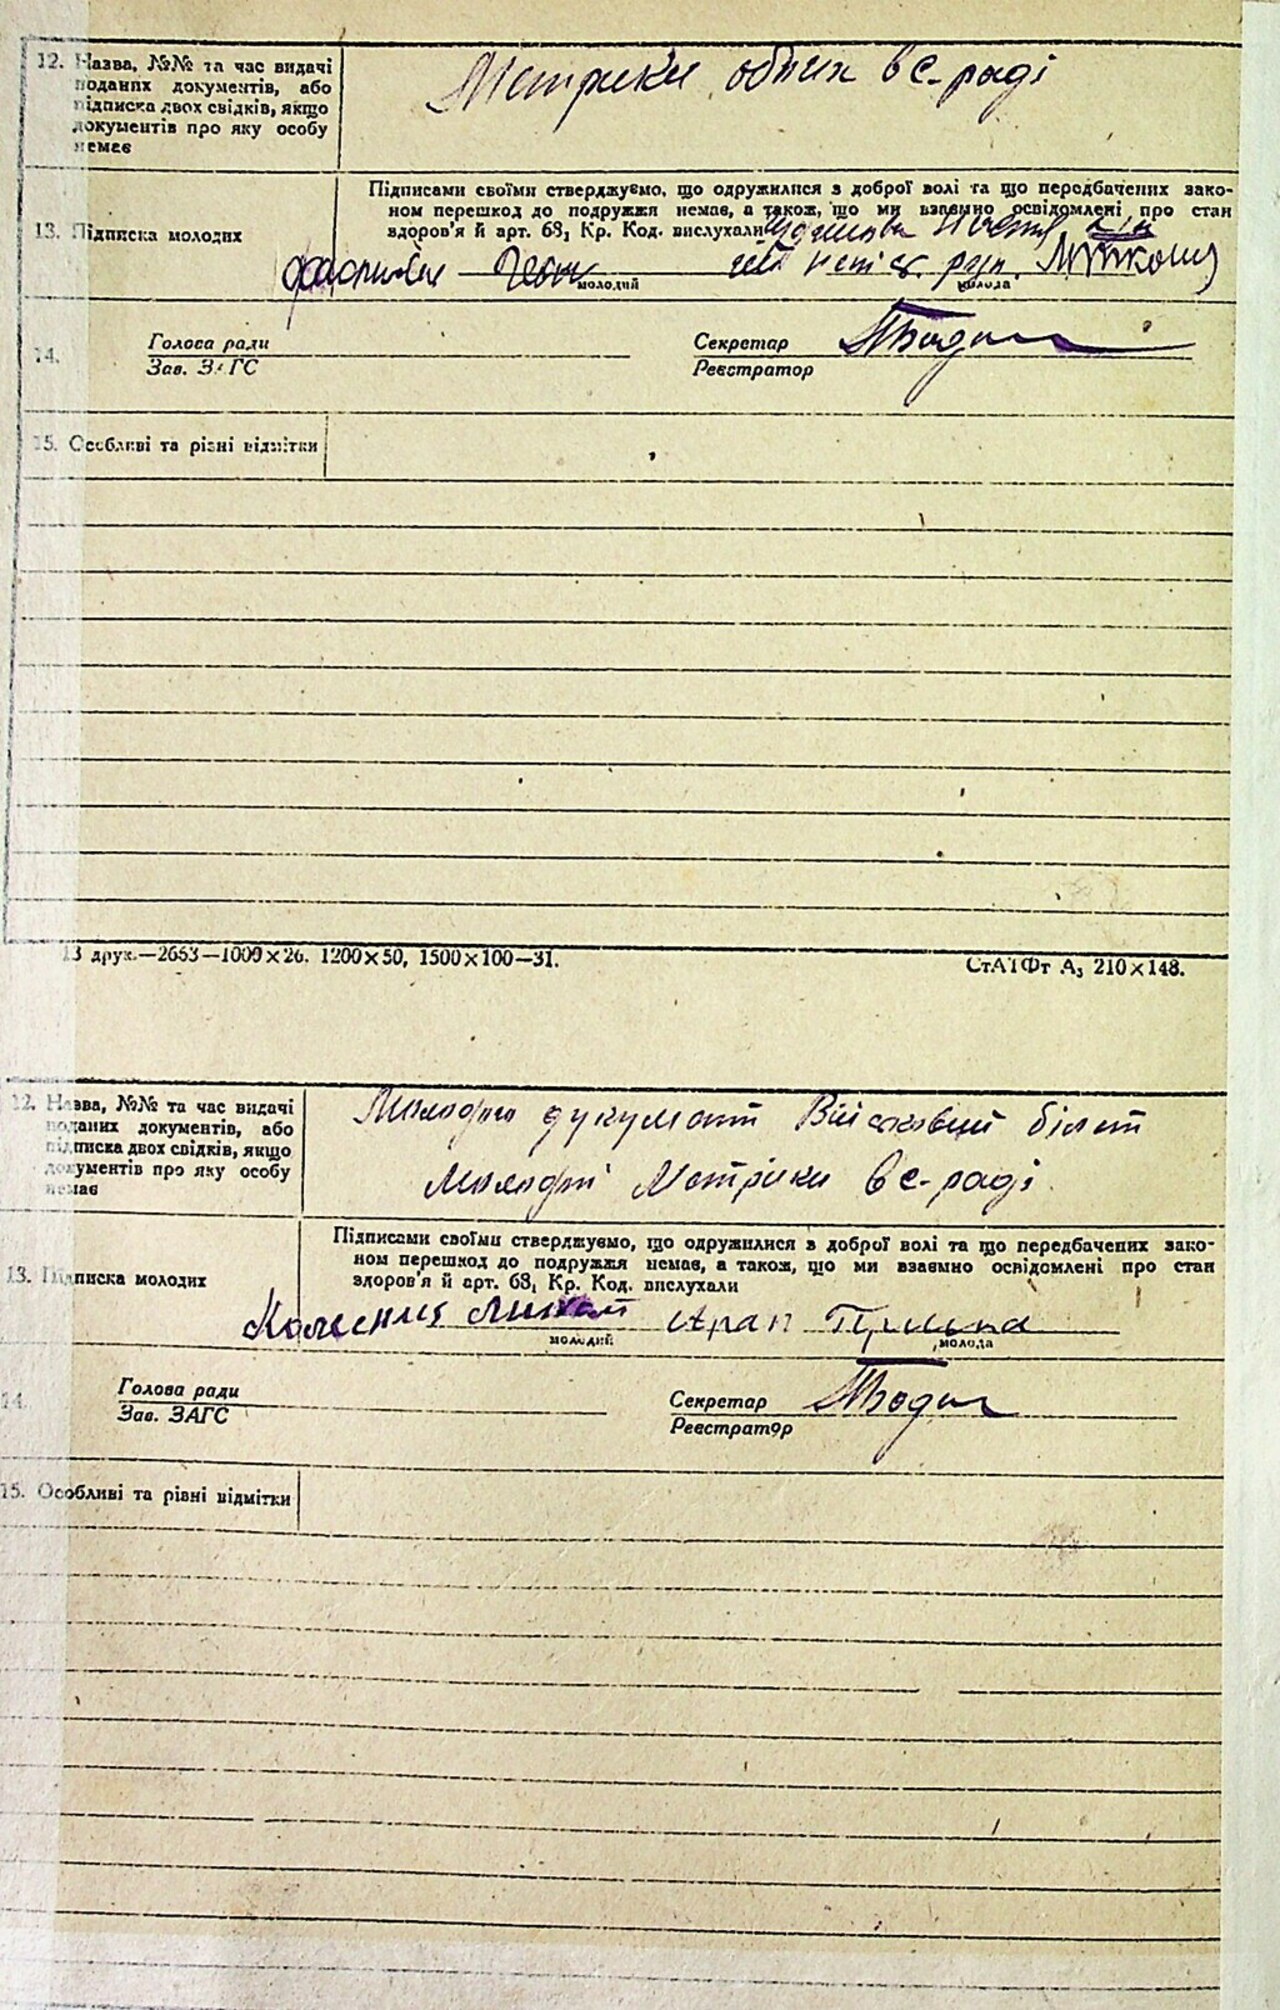 12. Назва, №№ та час видачі
поданих документів, або
підписка двох свідків, якщо
документів про яку особу
немає
Метрики обоих в с-раді
Підписами своїми стверджуємо, що одружилися з доброї волі та що передбачених зако-
ном перешкод до подружжя немає, а також, що ми взаємно освідомлені про стан
13. Підписка молодих
здоров'я й арт. 68, Кр. Код. вислухали
молодий
молода
14.
Голова ради
Зав. ЗАГС
Секретар
Реєстратор
15. Особливі та різні відмітки
13 друк.—2653—1000×26. 1200×50, 1500×100—31.
СтАТФт А₅ 210×148.
12. Назва, №№ та час видачі
поданих документів, або
підписка двох свідків, якщо
документів про яку особу
немає
Молодого документ Військовий білет
Молодої Метріки в с-раді
Підписами своїми стверджуємо, що одружилися з доброї волі та що передбачених зако-
ном перешкод до подружжя немає, а також, що ми взаємно освідомлені про стан
13. Підписка молодих
здоров'я й арт. 68, Кр. Код. вислухали
молодий
молода
14.
Голова ради
Зав. ЗАГС
Секретар
Реєстратор
15. Особливі та рівні відмітки